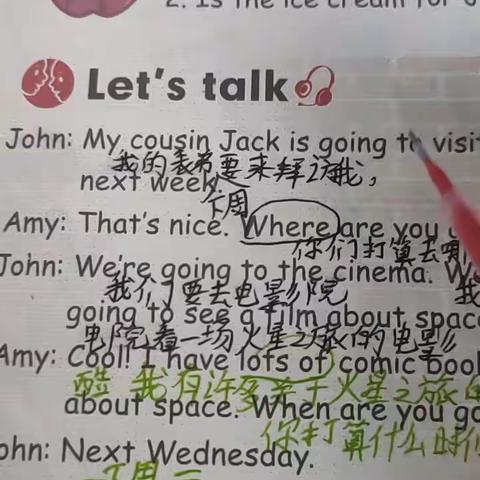 2. Is the ice cream for
Let's talk
John: My cousin Jack is going to visit
我的表弟要来拜访我,
next week.
下周
Amy: That's nice. Where are you
你们打算去哪
John: We're going to the cinema. We
我们要去电影院 我
going to see a film about space
电院看一场火星之旅的电影
Amy: Cool! I have lots of comic book
酷 我有许多关于火星之旅
about space. When are you go
你打算什么时候
John: Next Wednesday.
下周三